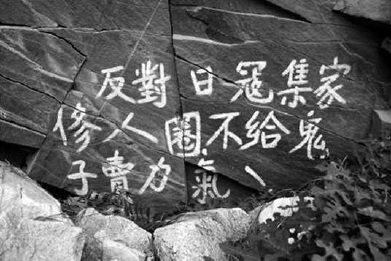 反對日寇集家
修人圈不給鬼
子賣力氣！